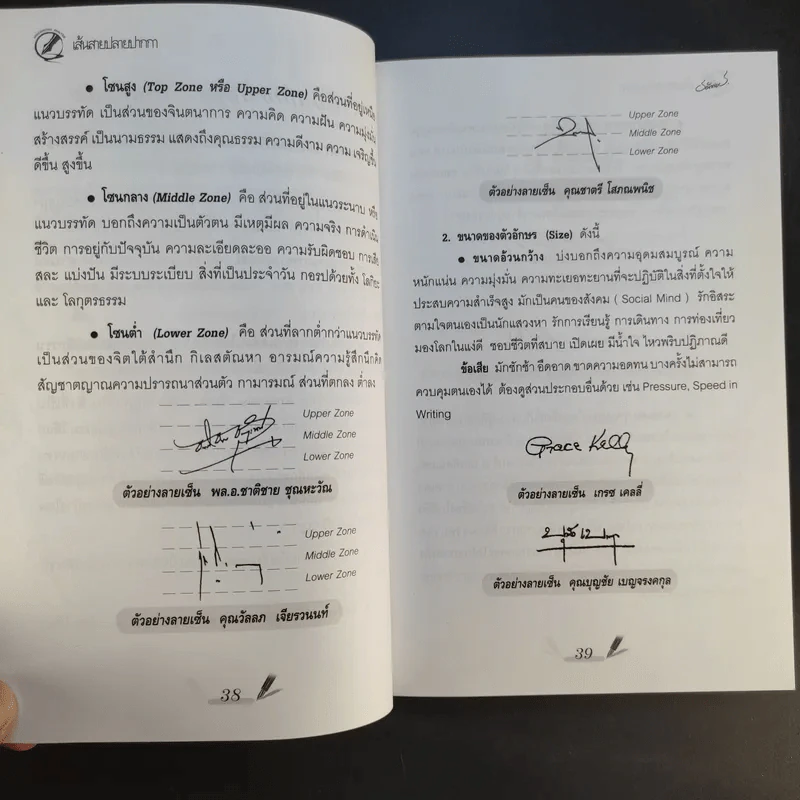 เส้นสายปลายปากกา
● โซนสูง (Top Zone หรือ Upper Zone) คือส่วนที่อยู่เหนือ
แนวบรรทัด เป็นส่วนของจินตนาการ ความคิด ความฝัน ความมุ่งมั่น
สร้างสรรค์ เป็นนามธรรม แสดงถึงคุณธรรม ความดีงาม ความ เจริญขึ้น
ดีขึ้น สูงขึ้น
● โซนกลาง (Middle Zone) คือ ส่วนที่อยู่ในแนวระนาบ หรือ
แนวบรรทัด บอกถึงความเป็นตัวตน มีเหตุมีผล ความจริง การดำเนิน
ชีวิต การอยู่กับปัจจุบัน ความละเอียดละออ ความรับผิดชอบ การเสีย
สละ แบ่งปัน มีระบบระเบียบ สิ่งที่เป็นประจำวัน กอรปด้วยทั้ง โลกียะ
และ โลกุตรธรรม
● โซนต่ำ (Lower Zone) คือ ส่วนที่ลากต่ำกว่าแนวบรรทัด
เป็นส่วนของจิตใต้สำนึก กิเลสตัณหา อารมณ์ความรู้สึกนึกคิด
สัญชาตญาณความปรารถนาส่วนตัว กามารมณ์ ส่วนที่ตกลง ต่ำลง
Upper Zone
Middle Zone
Lower Zone
ตัวอย่างลายเซ็น พล.อ.ชาติชาย ชุณหะวัณ
Upper Zone
Middle Zone
Lower Zone
ตัวอย่างลายเซ็น คุณวัลลภ เจียรวนนท์
38
Upper Zone
Middle Zone
Lower Zone
ตัวอย่างลายเซ็น คุณชาตรี โสภณพนิช
2. ขนาดของตัวอักษร (Size) ดังนี้
● ขนาดอ้วนกว้าง บ่งบอกถึงความอุดมสมบูรณ์ ความ
หนักแน่น ความมุ่งมั่น ความทะเยอทะยานที่จะปฏิบัติในสิ่งที่ตั้งใจให้
ประสบความสำเร็จสูง มักเป็นคนของสังคม ( Social Mind ) รักอิสระ
ตามใจตนเองเป็นนักแสวงหา รักการเรียนรู้ การเดินทาง การท่องเที่ยว
มองโลกในแง่ดี ชอบชีวิตที่สบาย เปิดเผย มีน้ำใจ ไหวพริบปฏิภาณดี
ข้อเสีย มักชักช้า อืดอาด ขาดความอดทน บางครั้งไม่สามารถ
ควบคุมตนเองได้ ต้องดูส่วนประกอบอื่นด้วย เช่น Pressure, Speed in
Writing
Grace Kelly
ตัวอย่างลายเซ็น เกรซ เคลลี่
ตัวอย่างลายเซ็น คุณบุญชัย เบญจรงคกุล
39